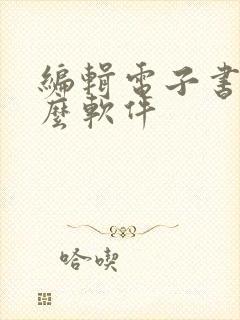 編輯電子書
麼軟件
哈喫